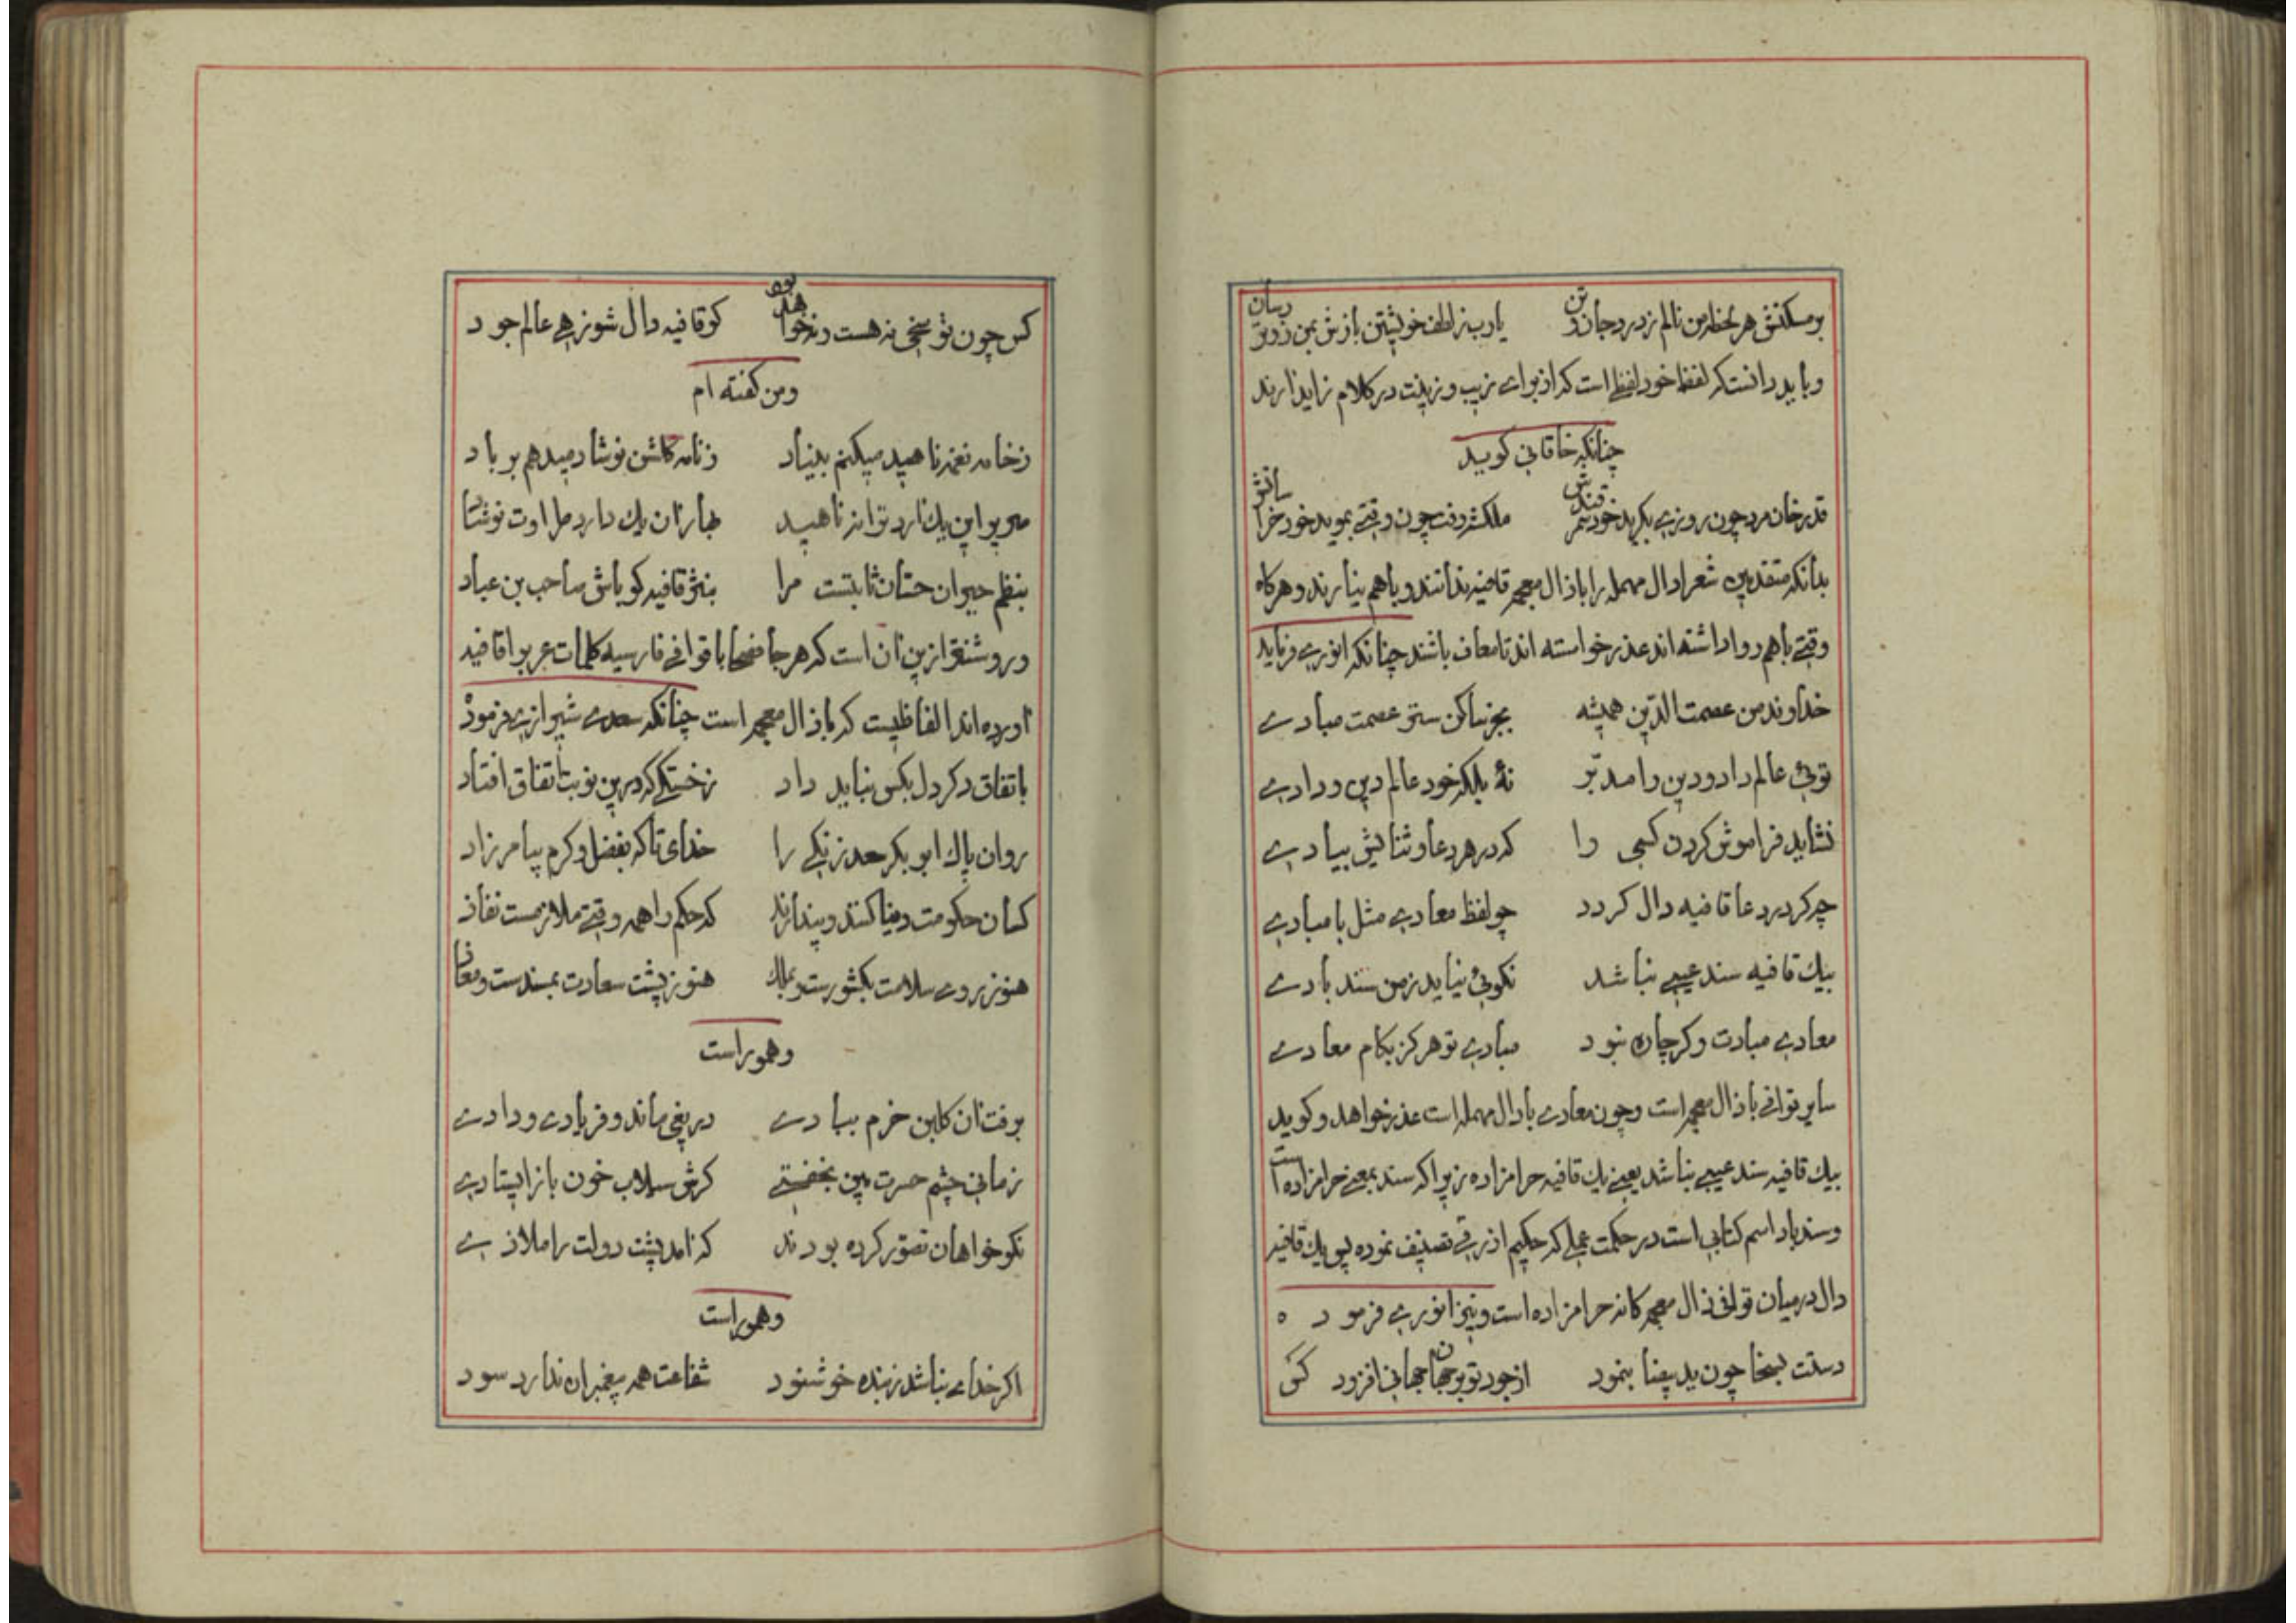 بر مسکنتش هر لحظه من نالم ز درد جان و تن یارب ز لطف خویشتن بازش بمن زودتر رسان
و باید دانست که لفظ خود لفظی است که از برای زیب و زینت در کلام زاید ارند
چنانکه خاقانی کوید
قدر خان مرد چون روزی بکرید خود سمرقندش ملکشه رفت چون وقتی بموید خود خراسانش
بدانکه متقدمین شعرا دال مهمله را با ذال معجمه قافیه ندانند و با هم نیارند و هرکاه
وقتی باهم روا داشته اند عذر خواسته اند تا معاف باشند چنانکه انوری فرماید
خداوند من عصمت الدین همیشه بجز ساکن ستر عصمت مبادی
توئی عالم داد و دین را مدبر نهٔ بلکه خود عالم دین و دادی
نشاید فراموش کردن کسی را که در هر دعا و ثنایش بیادی
چه کر در دعا قافیه دال کردد چو لفظ معادی مثل با مبادی
بیک قافیه سند عیبی نباشد نکوئی نیاید ز من سند بادی
معادی مبادت و کر چاره نبود مبادی تو هرکز بکام معادی
سایر قوافی با ذال معجمه است و چون معادی با دال مهمله است عذر خواهد و کوید
بیک قافیه سند عیبی نباشد یعنی یک قافیه حرامزاده زیرا که سند بمعنی حرامزاده است
و سندباد اسم کتابی است در حکمت عملی که حکیم ازرقی تصنیف نموده پس یک قافیه
دال در میان قوافی ذال معجمه کانه حرامزاده است و نیز انوری فرمود ه
دستت بسخا چون ید بیضا بنمود از جود تو بر جهان جهانی افزود کس
کس چون تو سخی نه هست و نه خواهد بود کو قافیه دال شو زهی عالم جود
و من کفته ام
ز خامه نغمه ناهید میکنم بنیاد ز نامه کلشن نوشاد میدهم بر باد
صریر این یک دارد ترانه ناهید بهار ان یک دارد طراوت نوشاد
بنظم حیران حسان ثابتست مرا بنثر قافیه کو باش صاحب بن عباد
و روشنتر ازین ان است که هر جا فصحا با قوافی فارسیه کلمات عربی را قافیه
اورده اند الفاظیست که با ذال معجمه است چنانکه سعدی شیرازی فرموده
باتفاق دکر دل بکس نباید داد ز خستکی که درین نوبت اتفاق افتاد
روان پاک ابو بکر سعد زنکی را خدای تاک بفضل و کرم بیامرزاد
کسان حکومت دنیا کنند و پندارند که حکم را همه وقتی ملازمست نفاذ
هنوز روی سلامت بکشورست و بملک هنوز پشت سعادت بمسندست و معاذ
و هم وراست
برفت ان کلبن خرم ببادی دریغی ماند و فریادی و دادی
زمانی چشم حسرت بین بخفتی کرش سیلاب خون باز ایستادی
نکو خواهان تصور کرده بودند که امد پشت دولت را ملاذی
و هم وراست
اکر خدای نباشد ز بنده خوشنود شفاعت همه پیغمبران ندارد سود